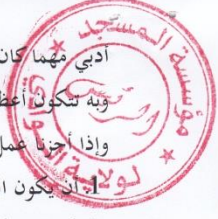 أدبي مهما كان
وبه تتكون أعظم
وإذا أجزنا عمل
1. أن يكون ا
مؤسسة المسجد
لولاية الوادي
الرئيس